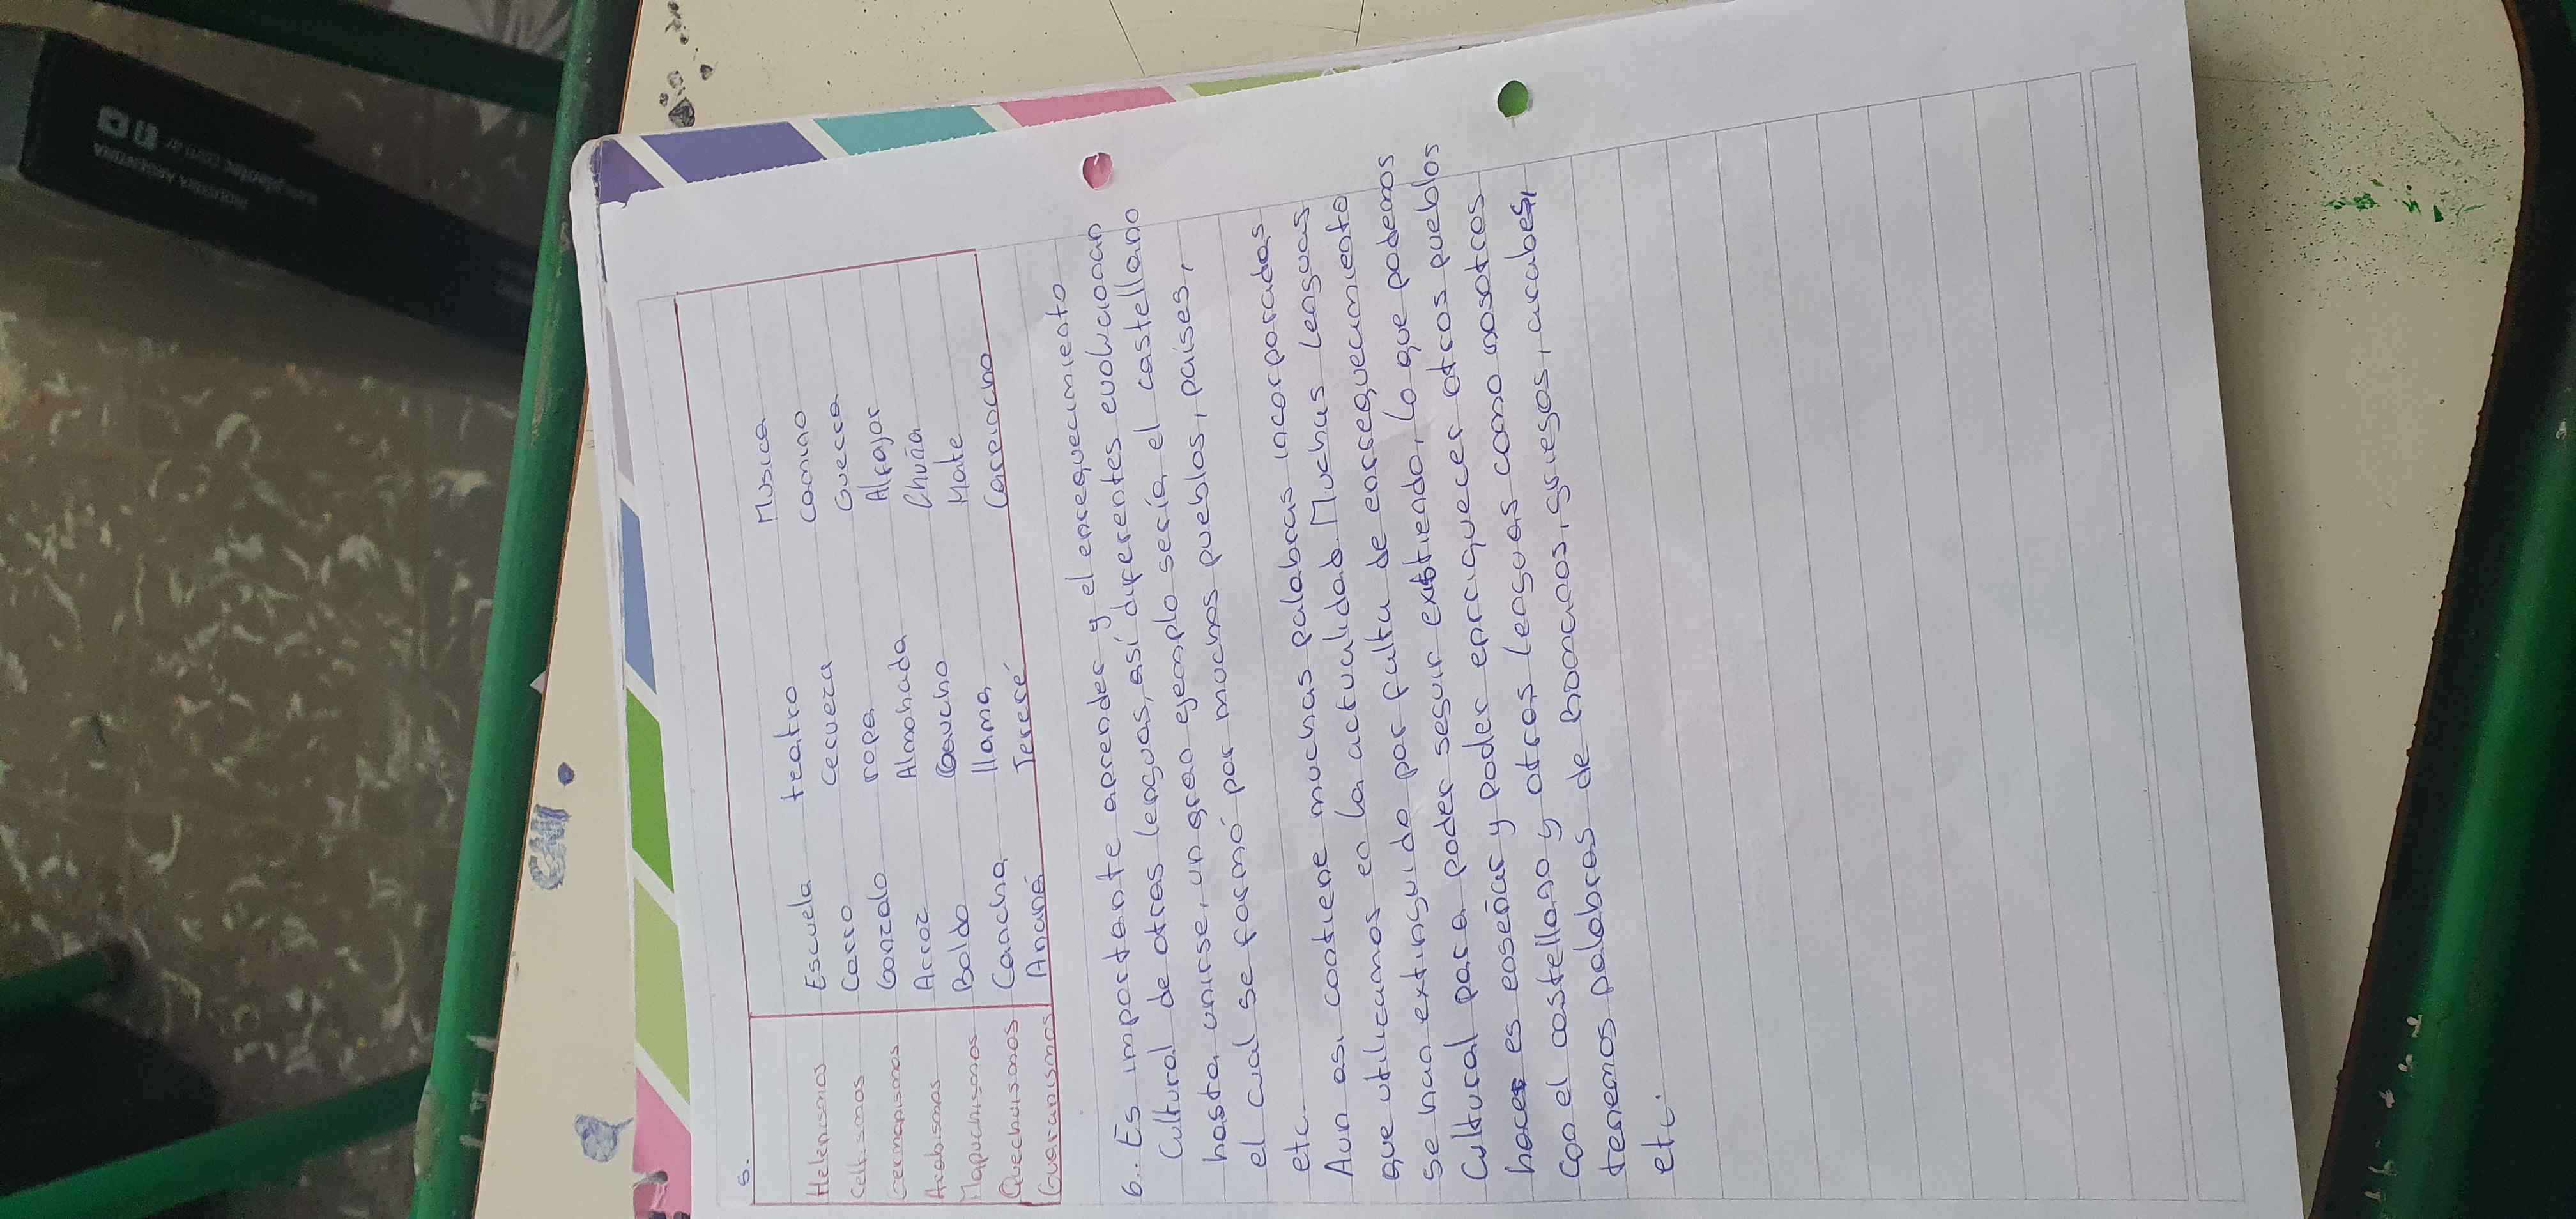 5.
Helenismos Escuela teatro Musica
Celtismos Carro Cerveza Camino
Germanismos Gonzalo ropa Guerra
Arabismos Arroz Almohada Alfajor
Mapuchismos Boldo Gaucho Chuña
Quechuismos Cancha llama Mate
Guaranismos Ananá Tereré Carpincho
6.. Es importante aprender y el enrequecimiento
Cultural de otras lenguas, así diferentes evolucionan
hasta unirse, un gran ejemplo sería el castellano
el cual se formó por muchos pueblos, países,
etc.
Aun asi contiene muchas palabras incorporadas
que utilizamos en la actualidad. Muchas lenguas
se han extinguido por falta de enrrequecimiento
Cultural para poder seguir existiendo, lo que podemos
hacer es enseñar y poder enriquecer otros pueblos
con el castellano y otras lenguas como nosotros
tenemos palabras de romanos, griegos, arabes,
etc.
INDUSTRIA ARGENTINA